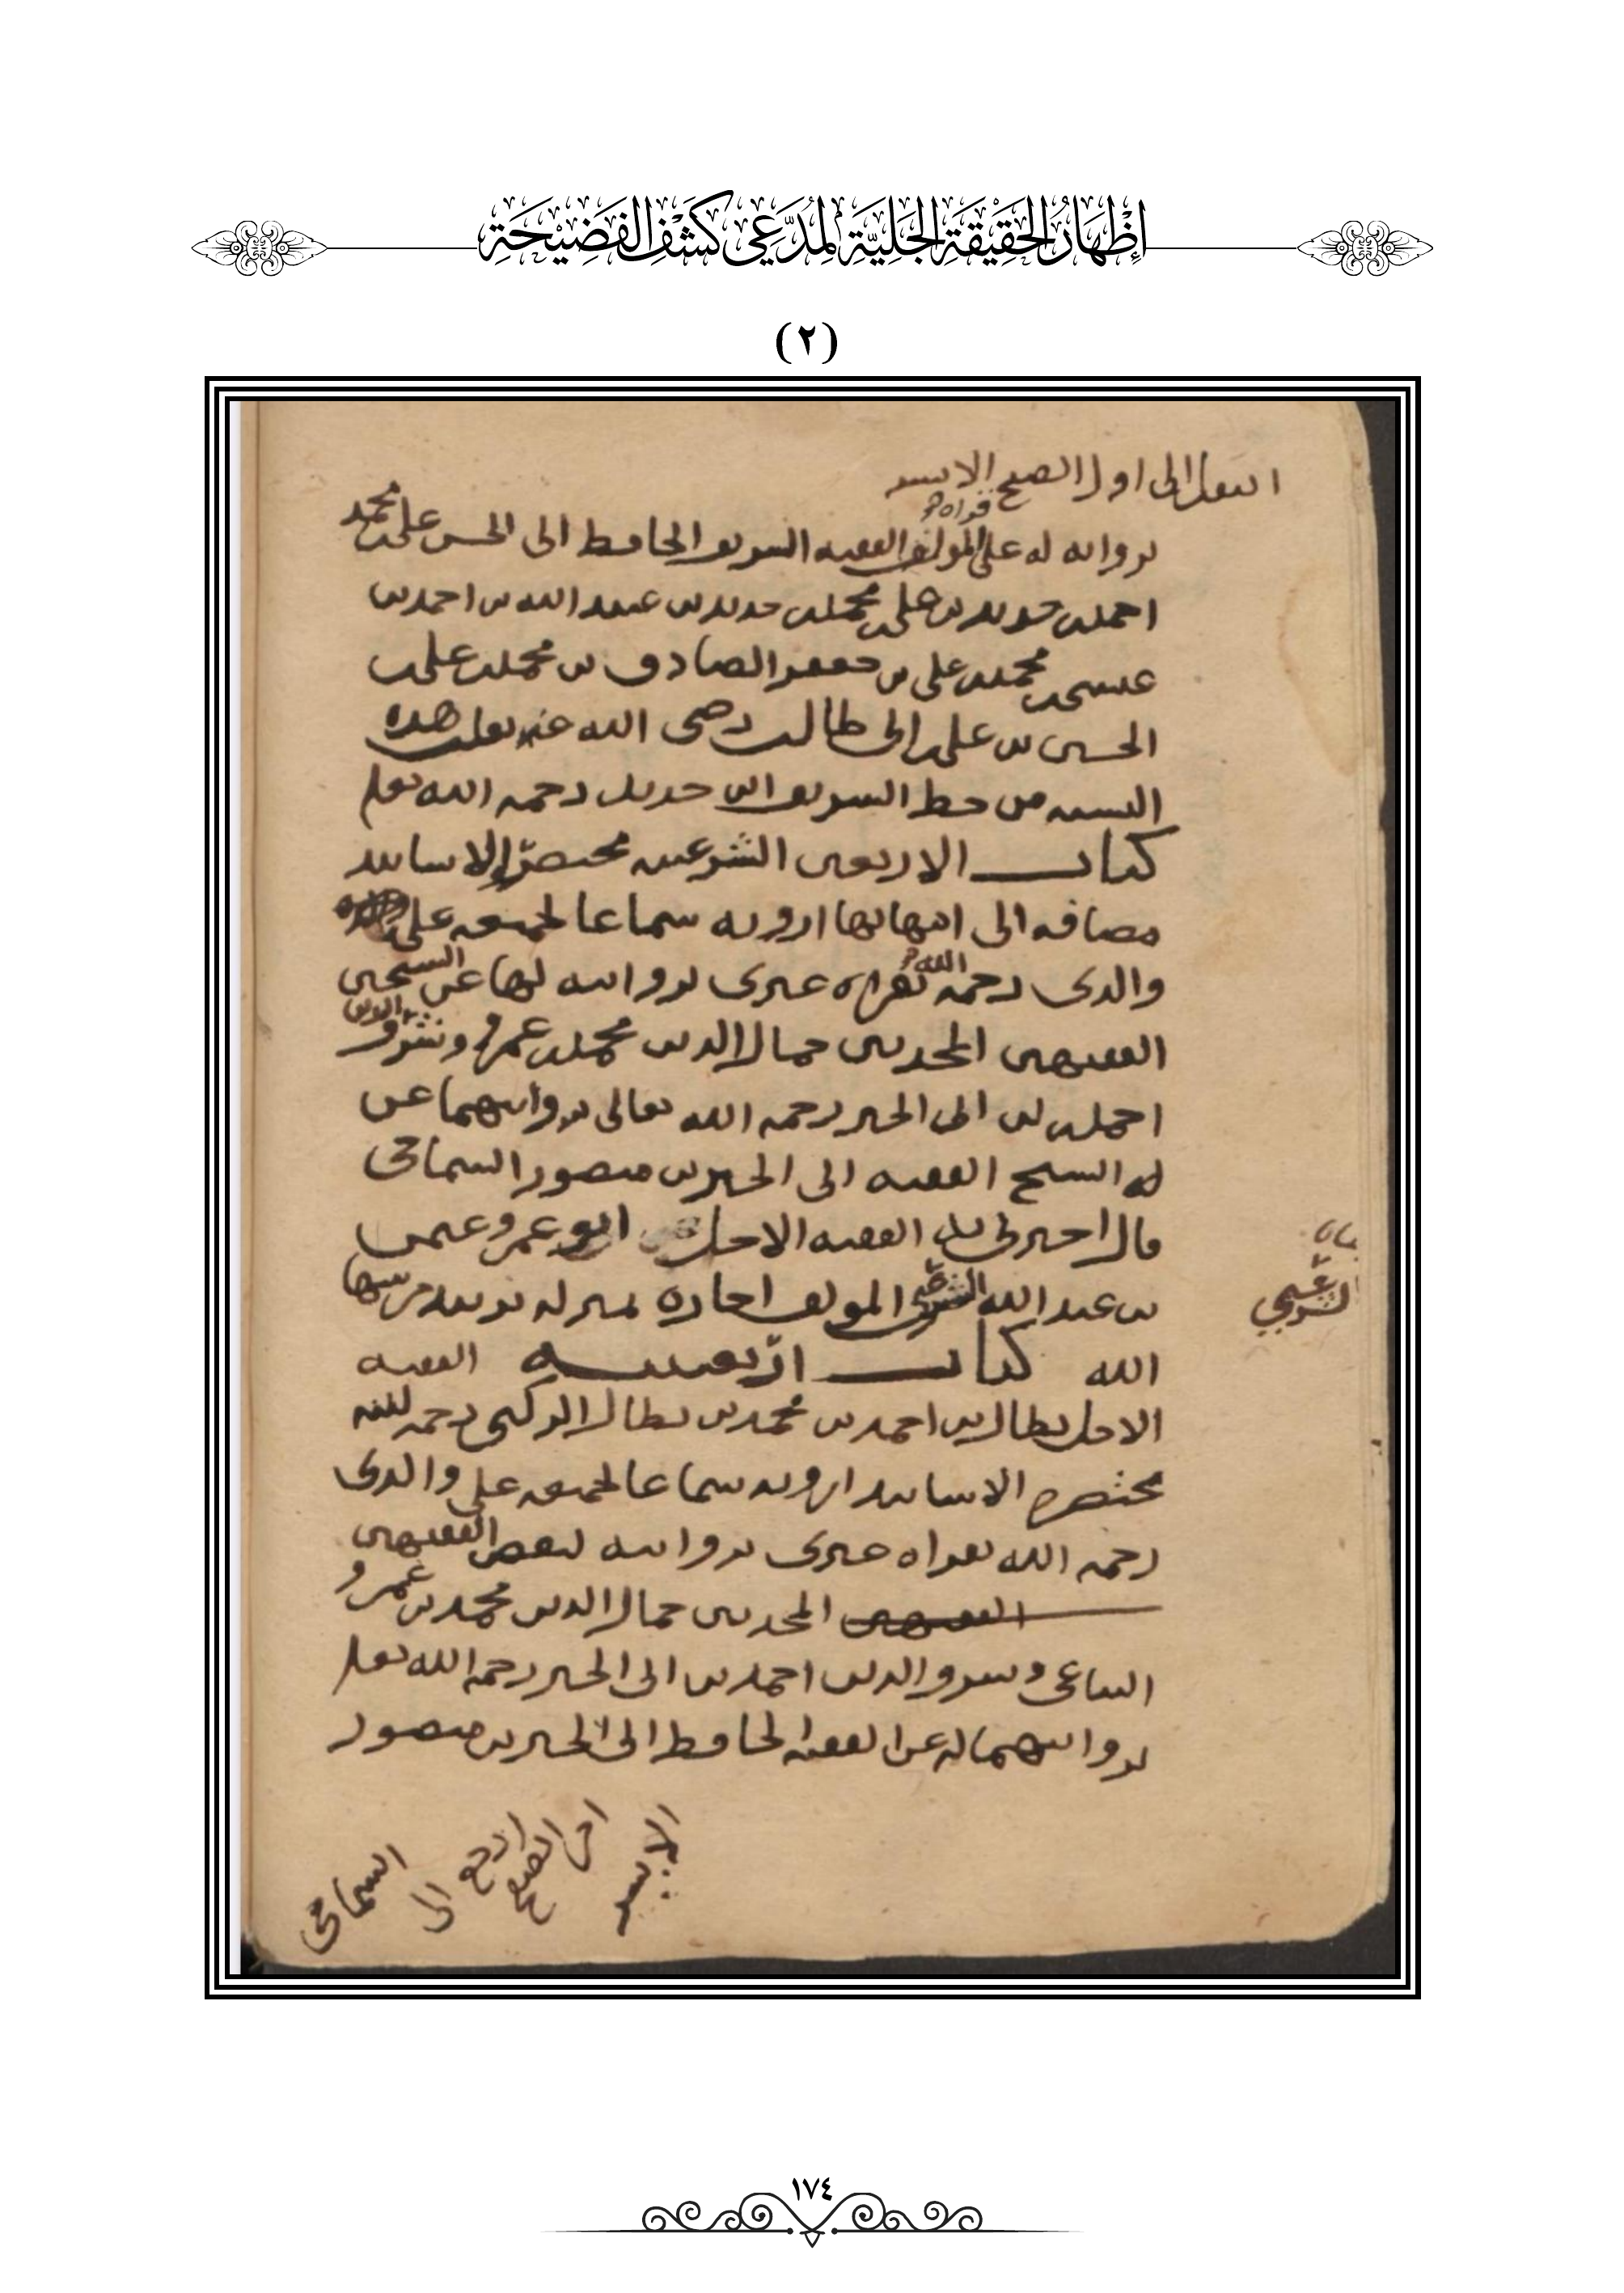 إِظْهَارُ الْحَقِيْقَةِ الْجَلِيَّةِ لِمُدَّعِي كَشْفِ الْفَضِيْحَةِ
(٢)
انتقل الى اول الصفح الايسر
قراه
بروايته له على المولف الفقيه الشريف الحافظ ابى الحسن على بن محمد
احمد بن حديد بن على بن محمد بن حديد بن عبد الله بن احمد بن
عيسى بن محمد بن على بن جعفر الصادق بن محمد بن على بن
الحسين بن على بن ابى طالب رضى الله عنه نقلت هذه
النسبه من خط الشريف ابن حديد رحمه الله تعلى
كتاب الاربعين الشرعيه مختصرا الاسانيد
مضافه الى امهاتها ارويه سماعا لجميعه على
والدى رحمه الله بقراة غيرى بروايته لها عن الشيخين
الفقيهين المحدثين جمال الدين محمد بن عمرو وشرف الدين
احمد بن ابى الخير رحمه الله تعالى بروايتهما عن
الشيخ الفقيه ابى الخير بن منصور الشماخى
قال اخبرنى الفقيه الاجل ابو عمرو عثمن
بن عبد الله الشرعبى المولف اجازة بمنزله حرسها
الله كتاب اربعين الفقيه
الاجل بطال بن احمد بن محمد بن بطال الركبى رحمه الله
مختصره الاسانيد ارويه سماعا لجميعه على والدى
رحمه الله بقراه غيرى بروايته لبعض الفقيهين
الفقيهين المحدثين جمال الدين محمد بن عمرو
التباعى وشرف الدين احمد بن ابى الخير رحمه الله تعلى
بروايتهما له عن الفقيه الحافظ ابى الخير بن منصور
الشماخى
ارجع الى
اخر الصفح
الايسر
الشرعبي
١٧٤